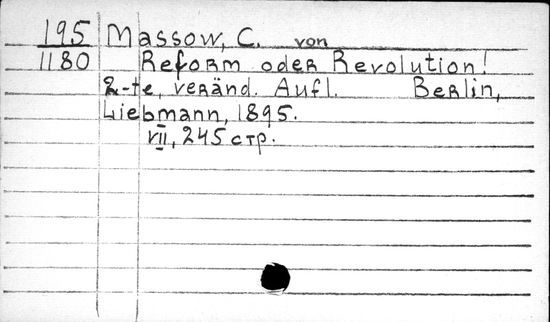 195 Massow, C. von
1180 Reform oder Revolution!
2-te, veränd. Aufl. Berlin,
Liebmann, 1895.
VII, 245 стр.